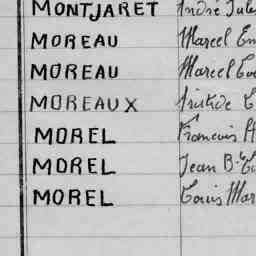 MONTJARET André Jule
MOREAU Marcel Em
MOREAU Marcel
MOREAUX Aristide
MOREL François
MOREL Jean B.te
MOREL Louis Mar